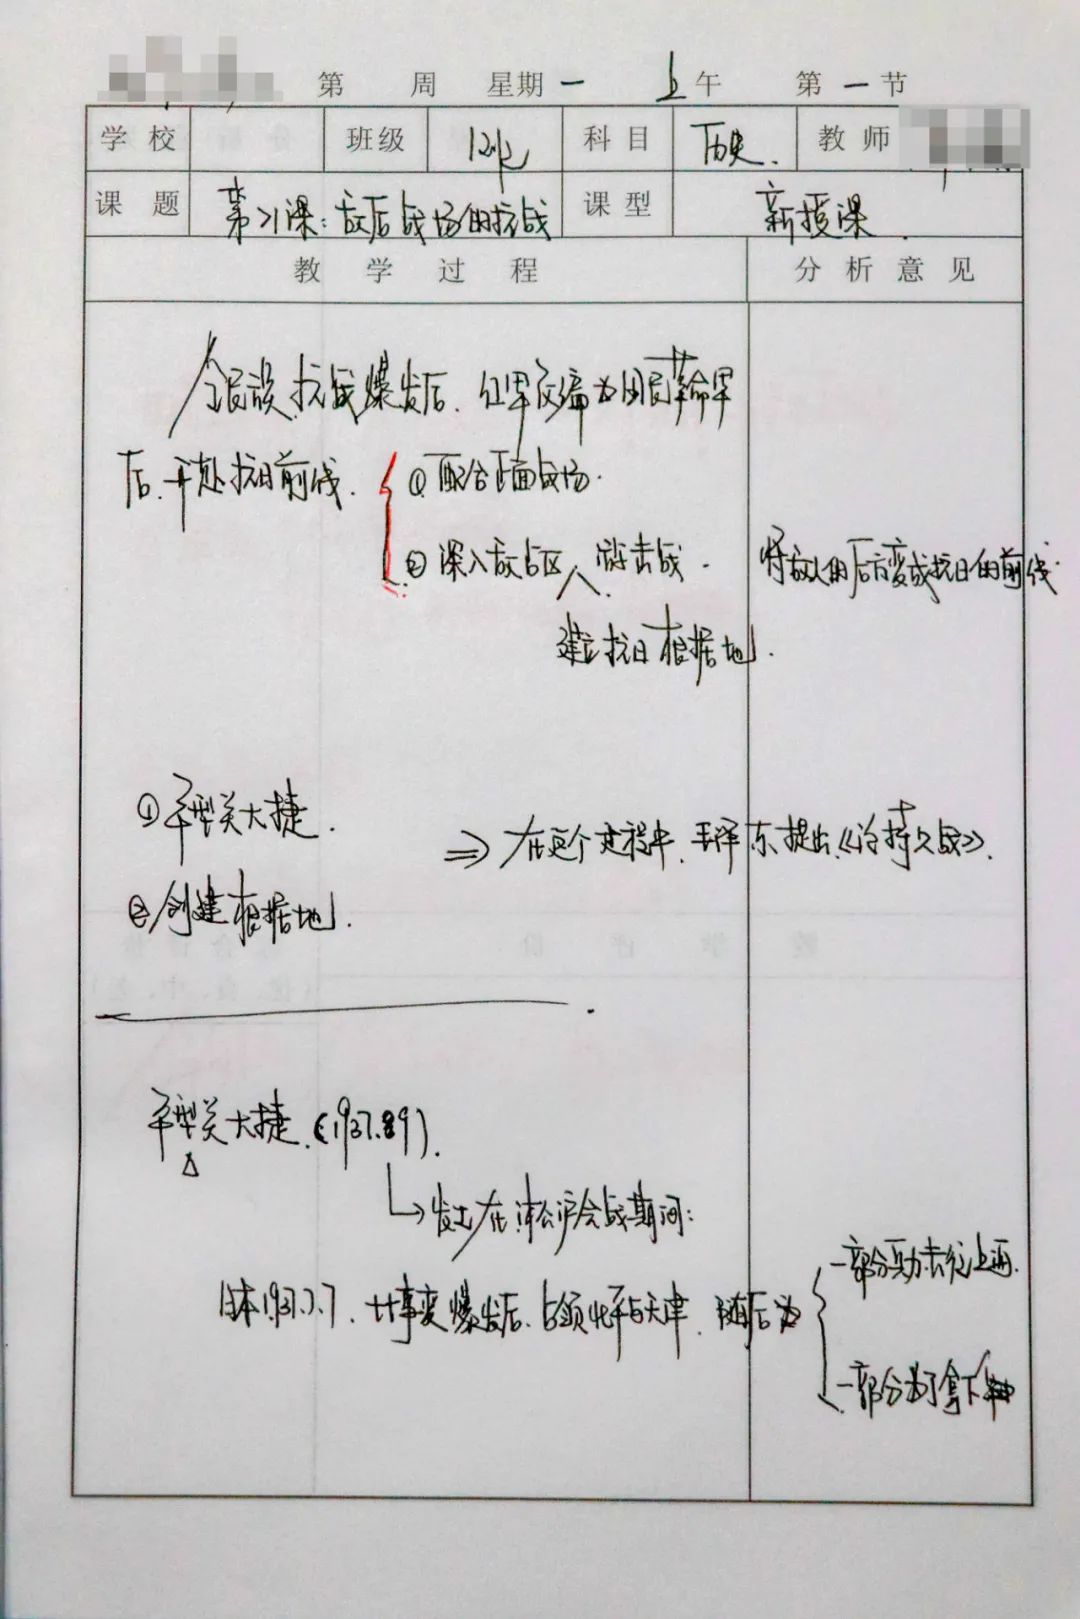 第 周 星期一 上午 第一节
学校 班级 科目 历史. 教师
课题 第21课:敌后战场的抗战 课型 新授课
教学过程 分析意见
全民族抗战爆发后、红军改编为国民革命军
后、开赴抗日前线. ①配合正面战场.
②深入敌占区 游击战. 将敌人的后方变成抗日的前线.
建立抗日根据地.
①平型关大捷.
⇒在这个过程中、毛泽东提出《论持久战》.
②创建根据地.
平型关大捷.(1937.9).
↳发生在淞沪会战期间:
一部分兵力去往上海.
日本1937.7.7.七七事变爆发后、占领北平与天津、随后兵
一部分为了拿下